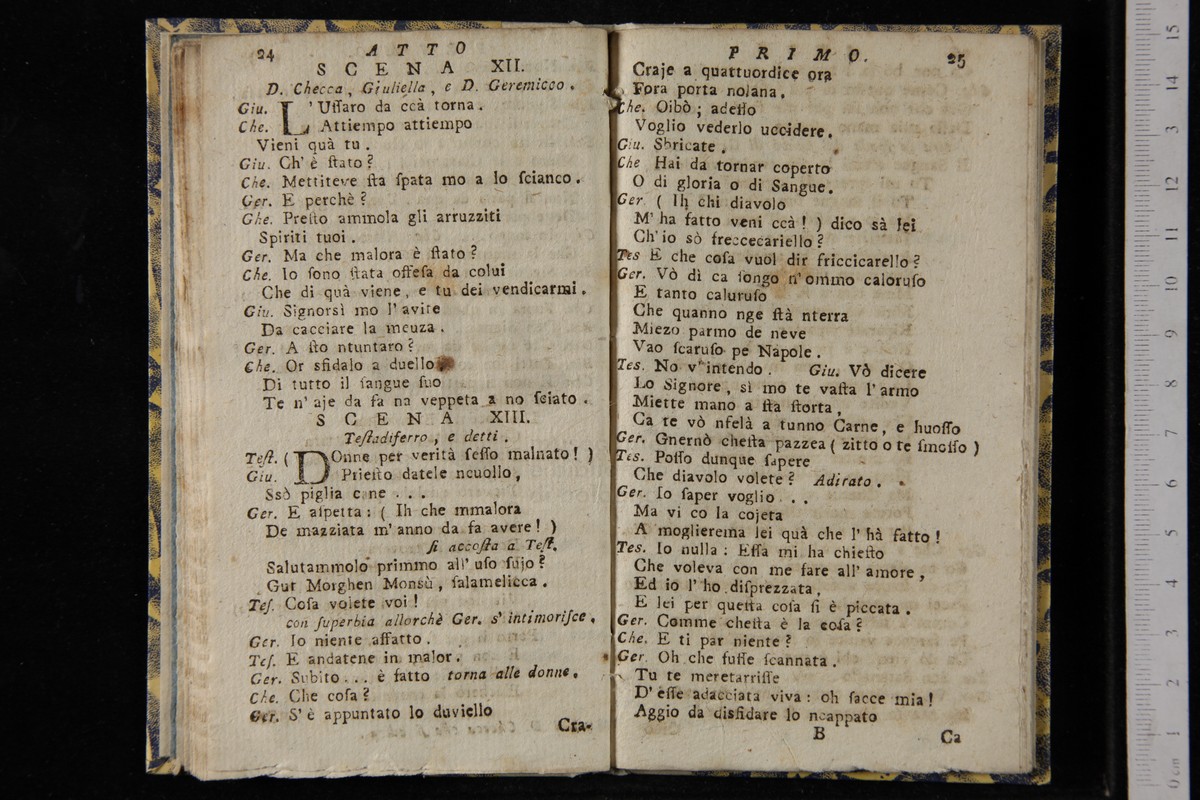 24
A T T O
S C E N A XII.
D. Checca, Giuliella, e D. Geremicco.
Giu. L'Uſſaro da ccà torna.
Che. Attiempo attiempo
Vieni quà tu.
Giu. Ch' è ſtato?
Che. Mettiteve ſta ſpata mo a lo ſcianco.
Ger. E perchè?
Ghe. Preſto ammola gli arruzziti
Spiriti tuoi.
Ger. Ma che malora è ſtato?
Che. Io ſono ſtata offeſa da colui
Che di quà viene, e tu dei vendicarmi.
Giu. Signorsì mo l'avite
Da cacciare la meuza.
Ger. A ſto ntuntaro?
Che. Or sfidalo a duello
Di tutto il ſangue ſuo
Te n' aje da fa na veppeta a no ſciato.
S C E N A XIII.
Teſtadiferro, e detti.
Teſt. ( DOnne per verità ſeſſo malnato! )
Giu. Prieſto datele ncuollo,
Ssò piglia cane . . .
Ger. E aſpetta: ( Ih che mmalora
De mazziata m' anno da fa avere! )
ſi accoſta a Teſt.
Salutammolo primmo all' uſo ſujo?
Gut Morghen Monsù, ſalamelicca.
Teſ. Coſa volete voi!
con ſuperbia allorchè Ger. s' intimoriſce.
Ger. Io niente affatto.
Teſ. E andatene in malor.
Ger. Subito... è fatto torna alle donne.
Che. Che coſa?
Ger. S' è appuntato lo duviello
Cra-
P R I M O.
25
Craje a quattuordice ora
Fora porta nolana.
Che. Oibò; adeſſo
Voglio vederlo uccidere.
Giu. Sbricate.
Che Hai da tornar coperto
O di gloria o di Sangue.
Ger ( Ih chi diavolo
M' ha fatto veni ccà! ) dico sà lei
Ch' io sò freccecariello?
Tes E che coſa vuol dir friccicarello?
Ger. Vò dì ca ſongo n' ommo caloruſo
E tanto caluruſo
Che quanno nge ſtà nterra
Miezo parmo de neve
Vao ſcaruſo pe Napole.
Tes. No v' intendo. Giu. Vò dicere
Lo Signore, sì mo te vaſta l' armo
Miette mano a ſta ſtorta,
Ca te vò nfelà a tunno Carne, e huoſſo
Ger. Gnernò cheſta pazzea ( zitto o te ſmoſſo )
Tes. Poſſo dunque ſapere
Che diavolo volete? Adirato.
Ger. Io ſaper voglio . . .
Ma vi co la cojeta
A moglierema lei quà che l' hà fatto!
Tes. Io nulla: Eſſa mi ha chieſto
Che voleva con me fare all' amore,
Ed io l' ho diſprezzata,
E lei per queſta coſa ſi è piccata.
Ger. Comme cheſta è la coſa?
Che. E ti par niente?
Ger. Oh che fuſſe ſcannata.
Tu te meretarriſſe
D' eſſe adacciata viva: oh facce mia!
Aggio da disfidare lo ncappato
B
Ca